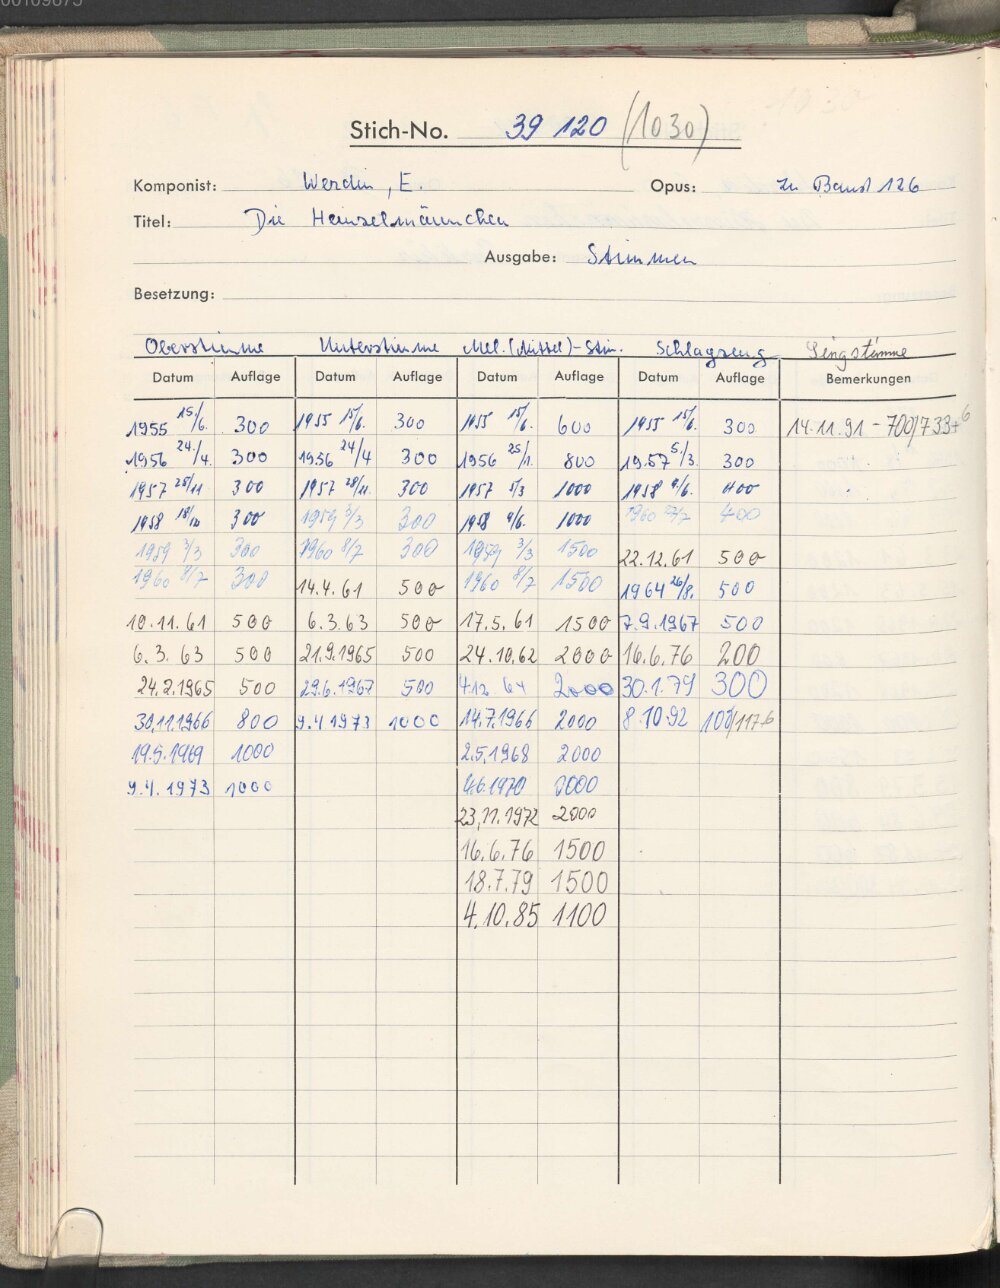 Stich-No. 39 120 (1030)
Komponist: Werdin, E. Opus: zu Band 126
Titel: Die Heinzelmännchen
Ausgabe: Stimmen
Besetzung:
Oberstimme Unterstimme Mel. (Mittel)-Stim. Schlagzeug Singstimme
Datum Auflage Datum Auflage Datum Auflage Datum Auflage Bemerkungen
1955 15./6. 300 1955 15/6. 300 1955 15/6. 600 1955 15/6. 300 14.11.91 - 700/733+6
1956 24./4. 300 1956 24/4 300 1956 25/1. 800 1957 5/3. 300
1957 28/11 300 1957 28/11. 300 1957 5/3 1000 1958 9/6. 400
1958 18/10 300 1959 3/3 300 1958 9/6. 1000 1960 400
1959 3/3 300 1960 8/7 300 1959 3/3 1500 22.12.61 500
1960 8/7 300 14.4.61 500 1960 8/7 1500 1964 26/8. 500
10.11.61 500 6.3.63 500 17.5.61 1500 7.9.1967 500
6.3.63 500 21.9.1965 500 24.10.62 2000 16.6.76 200
24.2.1965 500 29.6.1967 500 4.12.64 2000 30.1.79 300
30.11.1966 800 9.4.1973 1000 14.7.1966 2000 8.10.92 100/117.6
19.5.1969 1000 2.5.1968 2000
9.4.1973 1000 4.6.1970 2000
23.11.1972 2000
16.6.76 1500
18.7.79 1500
4.10.85 1100